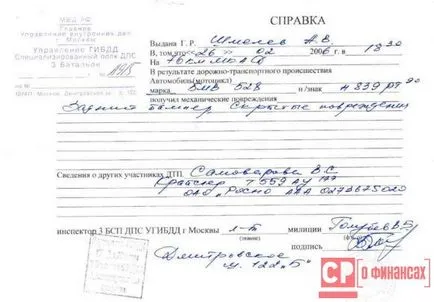 СПРАВКА
МВД РФ
Главное
Управление внутренних дел
г. Москвы
Управление ГИБДД
Специализированный полк ДПС
3 Батальон
Выдана Г. Р. Шмелев А.В.
В том, что «26» 02 2006 г. в 18 30
На 76 км МКАД
В результате дорожно-транспортного происшествия
Автомобиль(мотоцикл)
марка БМВ 528 г/знак Н 839 РТ 90
получил механические повреждения
Задний бампер Скрытые повреждения
Сведения о других участниках ДТП Самоварова В.С
Крайслер Т 559 АУ 177
ОАО "Росно ААА
инспектор 3 БСП ДПС УГИБДД г Москвы л-т милиции Голубев
(звание)
подпись
Дмитровское
ш. 122 "Б"
СР О ФИНАНСАХ